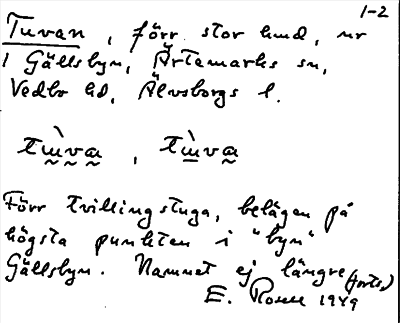 1-2
Tuvan, förr stor lund, nr
1 Gällsbyn, Ärtemarks sn,
Vedbo hd, Älvsborgs l.
tɯ̀va, tɯ̀va
Förr tvillingstuga, belägen på
högsta punkten i "byn"
Gällsbyn. Namnet ej längre (forts.)
E. Rosell 1949